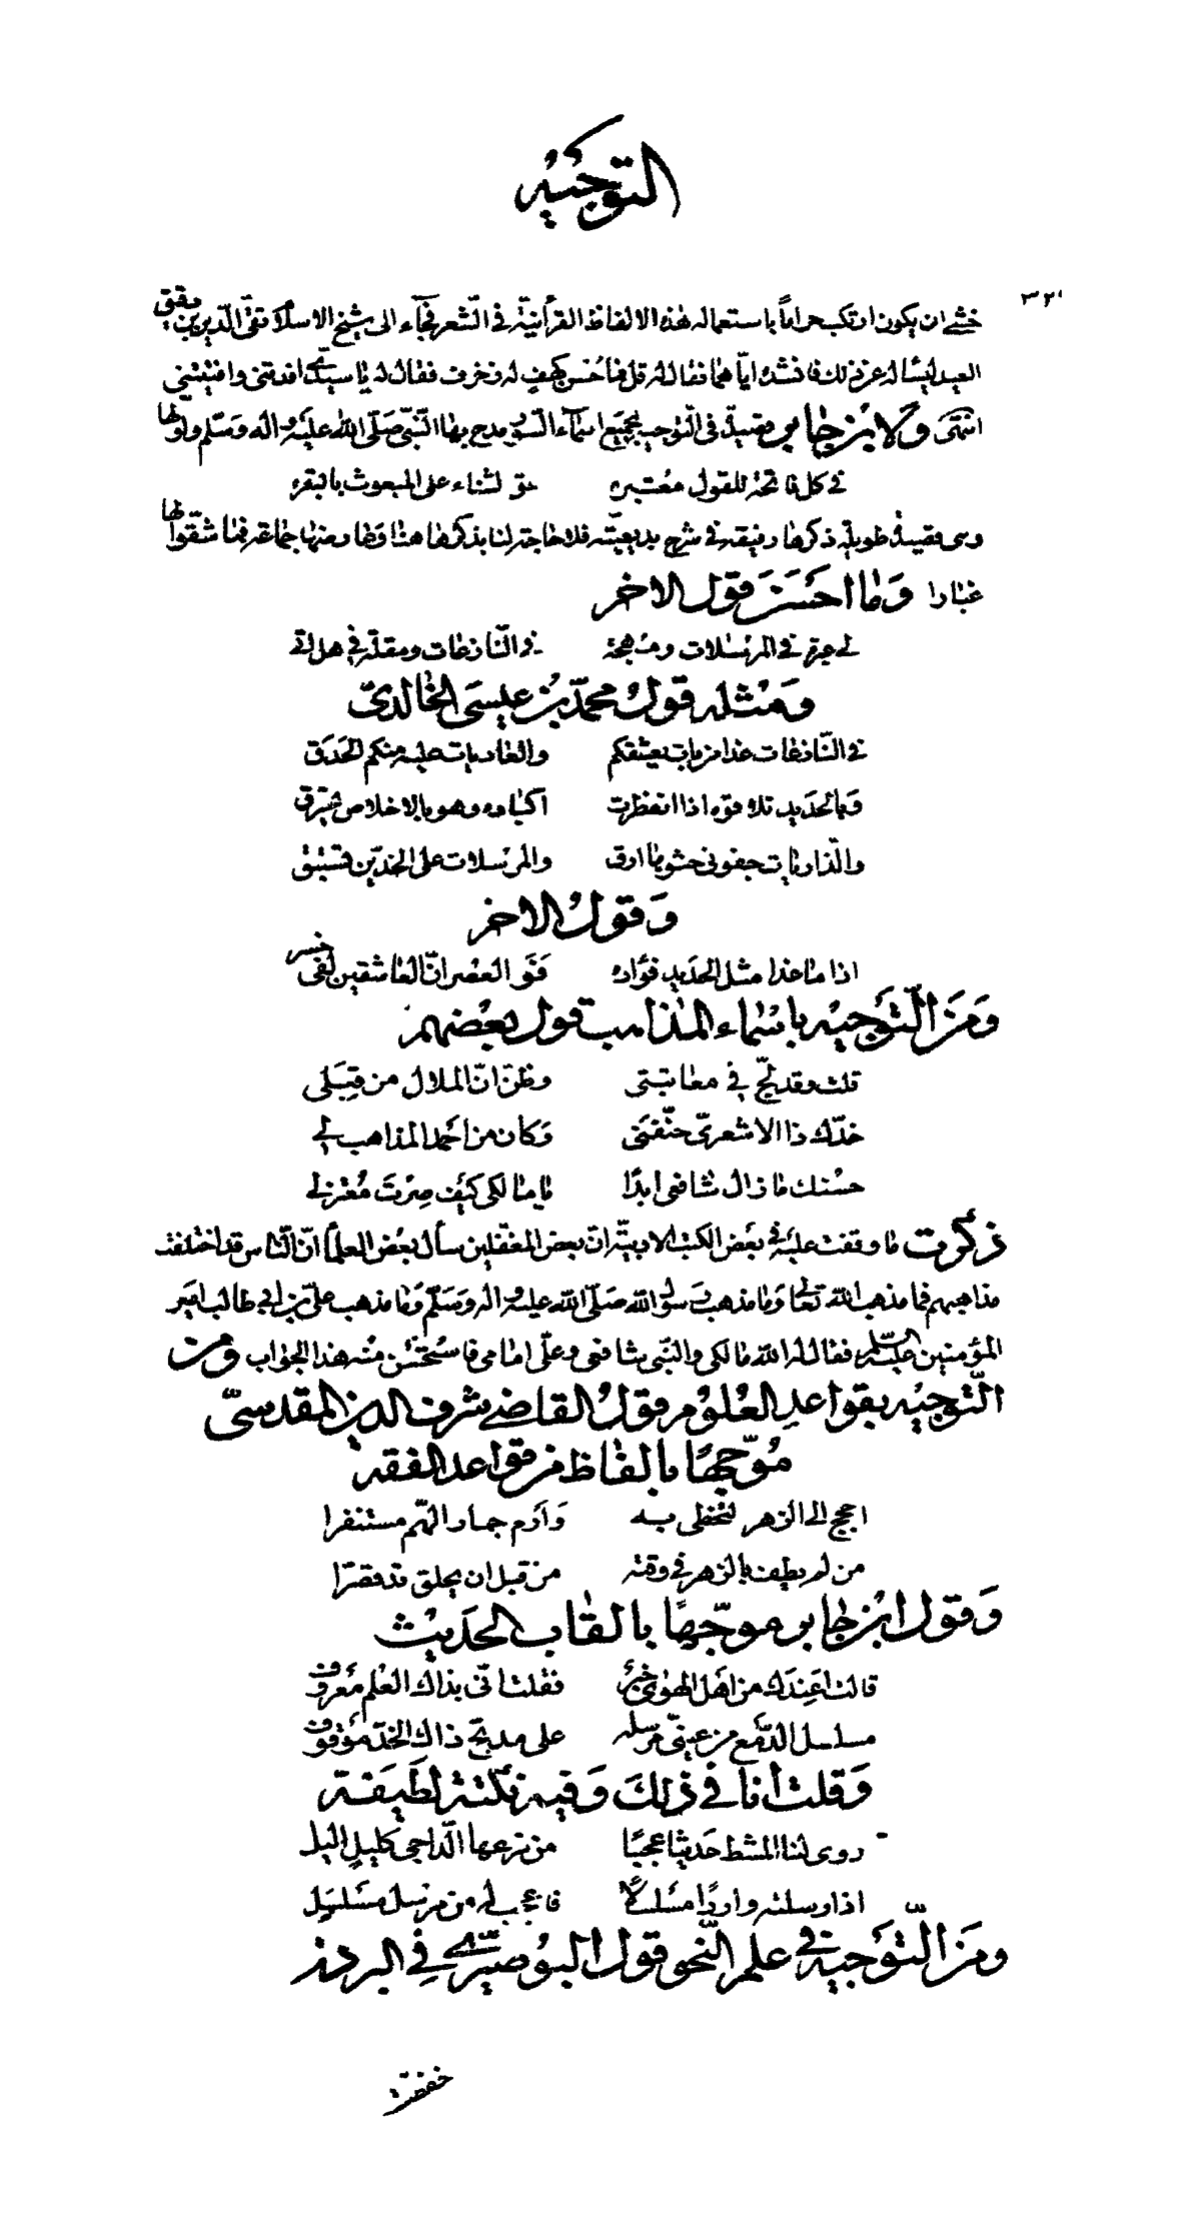 التوجيه
٣٢١
خشي ان يكون ارتكب حراماً باستعماله هذه الالفاظ القرآنية في الشعر فجآء الى شيخ الاسلام تقي الدين بن دقيق
العيد ليسأله عن ذلك فانشده اياهما فقال له قل فما حُسْن كهفٍ له زخرف فقال له يا سيدي افدتني وافتيتني
انتهى ولابن جابر قصيدة في التوجيه بجميع اسمآء السور مدح بها النبي صلى الله عليه واله وسلم واولها
في كل فاتحة للقول معتبره حق الثناء على المبعوث بالبقره
وهي قصيدة طويلة ذكرها رفيقه في شرح بديعيته فلا حاجة لنا بذكرها هنا وعارضها جماعة فما شقوا لها
غبارا وما احسن قول الاخر
لي عبرة في المرسلات ومهجة في النازعات ومقلة في هل اتى
ومثله قول محمد بن عيسى الخالدي
في النازعات غدا من بات يعشقكم والعاديات عليه منكم الحدق
وبالحديد تلاقوه اذا انفطرت اكباده وهو بالاخلاص محترق
والذاريات جفوني حشوها ارق والمرسلات على الخدين تستبق
وقول الاخر
اذا ما غدا مثل الحديد فؤاده فو العصر ان العاشقين لفي خسر
ومن التوجيه باسماء المذاهب قول بعضهم
قلت وقد لجّ في معاتبتي وظن ان الملال من قبلي
خدك ذا الاشعري حنفني وكان من احمد المذاهب لي
حسنك ما زال شافعي ابدًا يا مالكي كيف صرت معتزلي
ذكرت ما وقفت عليه في بعض الكتب الادبية ان بعض المغفلين سأل بعض العلمآ ان الناس قد اختلفت
مذاهبهم فما مذهب الله تعالى وما مذهب رسول الله صلى الله عليه واله وسلم وما مذهب علي بن ابي طالب امير
المؤمنين عليه السلم فقال له الله مالكي والنبي شافعي وعلي امامي فاستحسن منه هذا الجواب ومن
التوجيه بقواعد العلوم قول القاضي شرف الدين المقدسي
موجهًا بالفاظ من قواعد الفقه
احجج الى الزهر لتحظى به وارم جمار الهم مستنفرا
من لم يطف بالزهر في وقته من قبل ان يحلق قد قصرا
وقول ابن جابر موجهًا بالقاب الحديث
قالت اعندك من اهل الهوى خبر فقلت اني بذاك العلم معروف
مسلسل الدمع من عيني مرسله على مدبج ذاك الخد موقوف
وقلت انا في ذلك وفيه نكتة لطيفة
روى لنا المشط حديثا عجبًا من فرعها الداجي كليل اليل
اذا رسلته واردًا مسلسلاً فاعجب له من مرسل مسلسل
ومن التوجيه في علم النحو قول البوصيري في البردة
خفضت